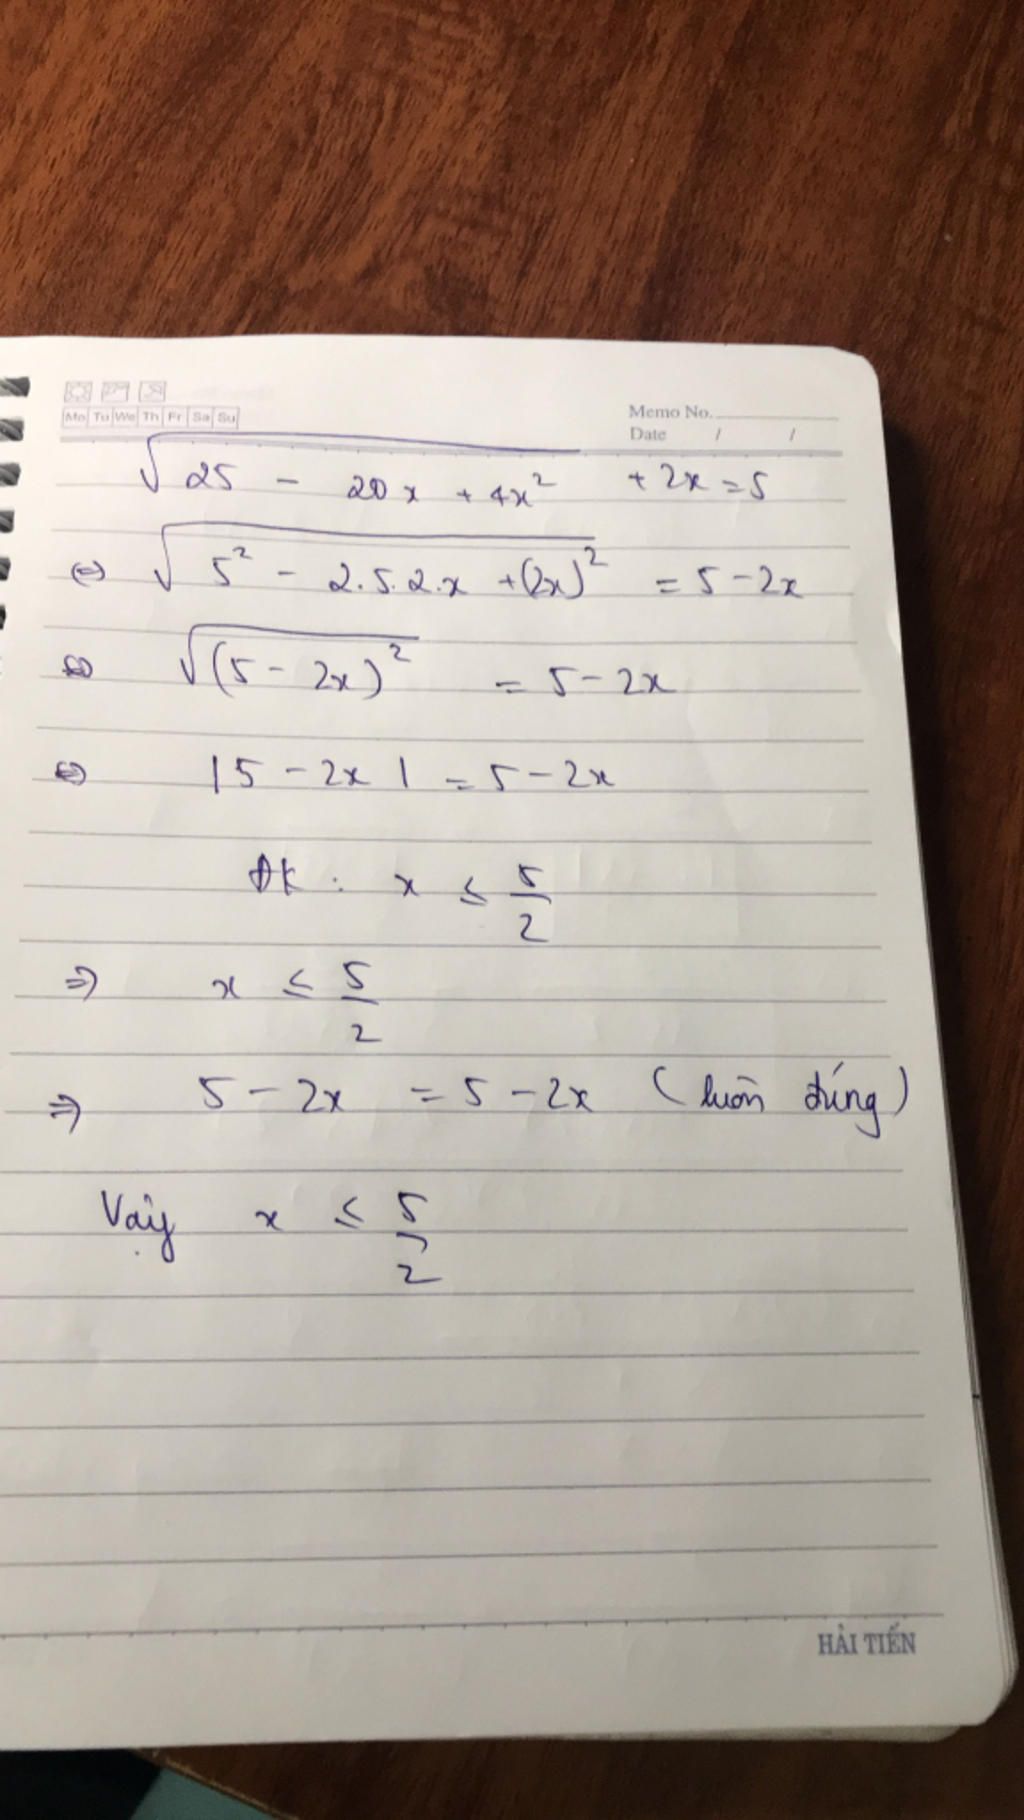 Mo Tu We Th Fr Sa Su
Memo No.
Date / /
√(25 - 20x + 4x²) + 2x = 5
⇔ √(5² - 2.5.2.x + (2x)²) = 5 - 2x
⇔ √((5 - 2x)²) = 5 - 2x
⇔ |5 - 2x| = 5 - 2x
ĐK : x ≤ 5/2
⇒ x ≤ 5/2
⇒ 5 - 2x = 5 - 2x (luôn đúng)
Vậy x ≤ 5/2
HẢI TIẾN